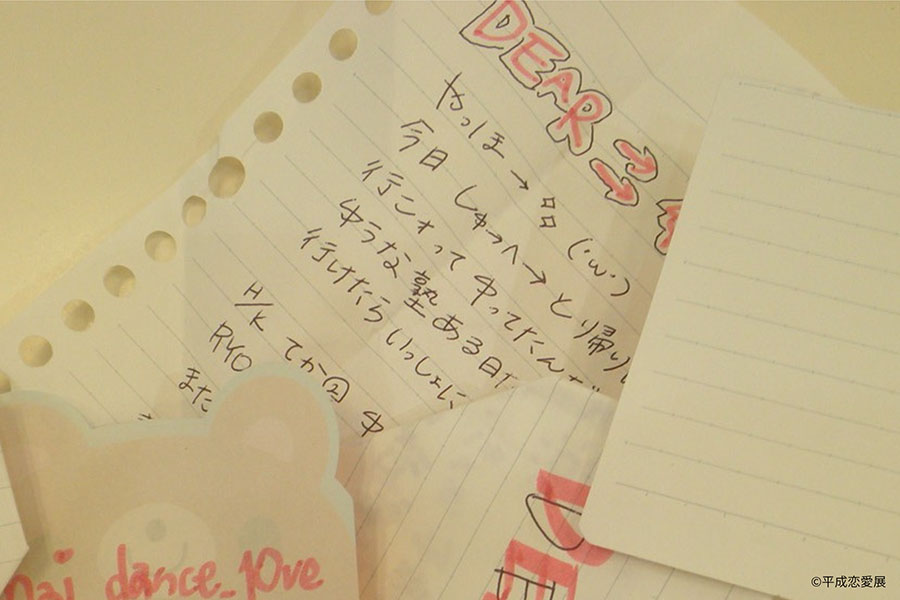 DEAR
やっほ→品(・ω・)
今日 しゅっへ→とり帰り
行こォって ゆってたんだ
ゆうな塾ある日だ
行けたら いっしょに
H/K てか図 ゆ
RYO
また
DE
dance_love
©平成恋愛展